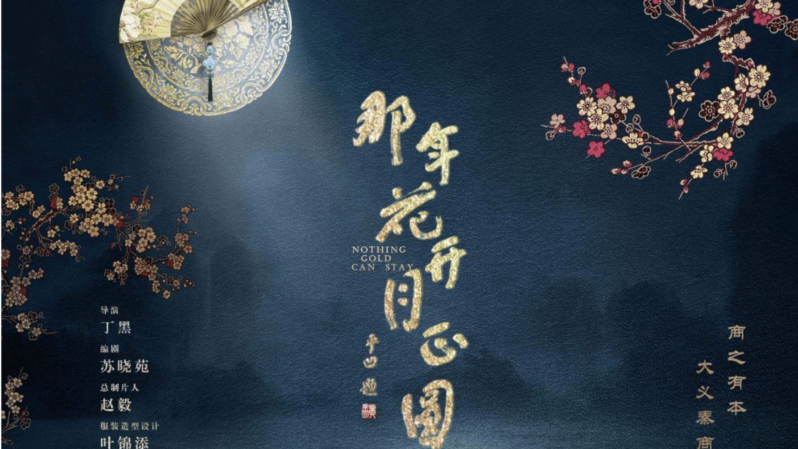 那年花开月正圆
NOTHING
GOLD
CAN STAY
平凹题
导演
丁黑
编剧
苏晓苑
总制片人
赵毅
服装造型设计
叶锦添
商之有本
大义秦商